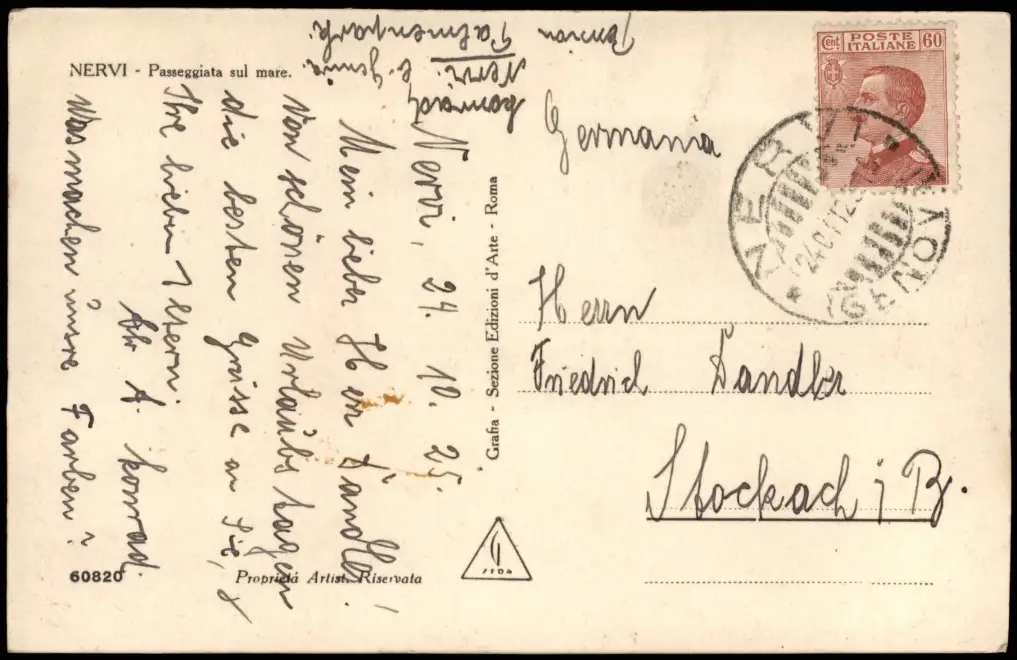 NERVI - Passeggiata sul mare.
Konrad,
Nervi
b. Genua
Pension
Palmenpark
Nervi, 24. 10. 25.
Mein lieber Herr Sandler!
Von schönen Urlaubstagen
die besten Grüsse an Sie, &
Ihre lieben Eltern.
Ihr A. Konrad.
Was machen unsre Farben?
60820
Proprietà Artist. Riservata
Grafia - Sezione Edizioni d'Arte - Roma
SEDA
Cent. POSTE ITALIANE 60
NERVI
GENOVA
Germania
Herrn
Friedrich Sandler
Stockach i B.